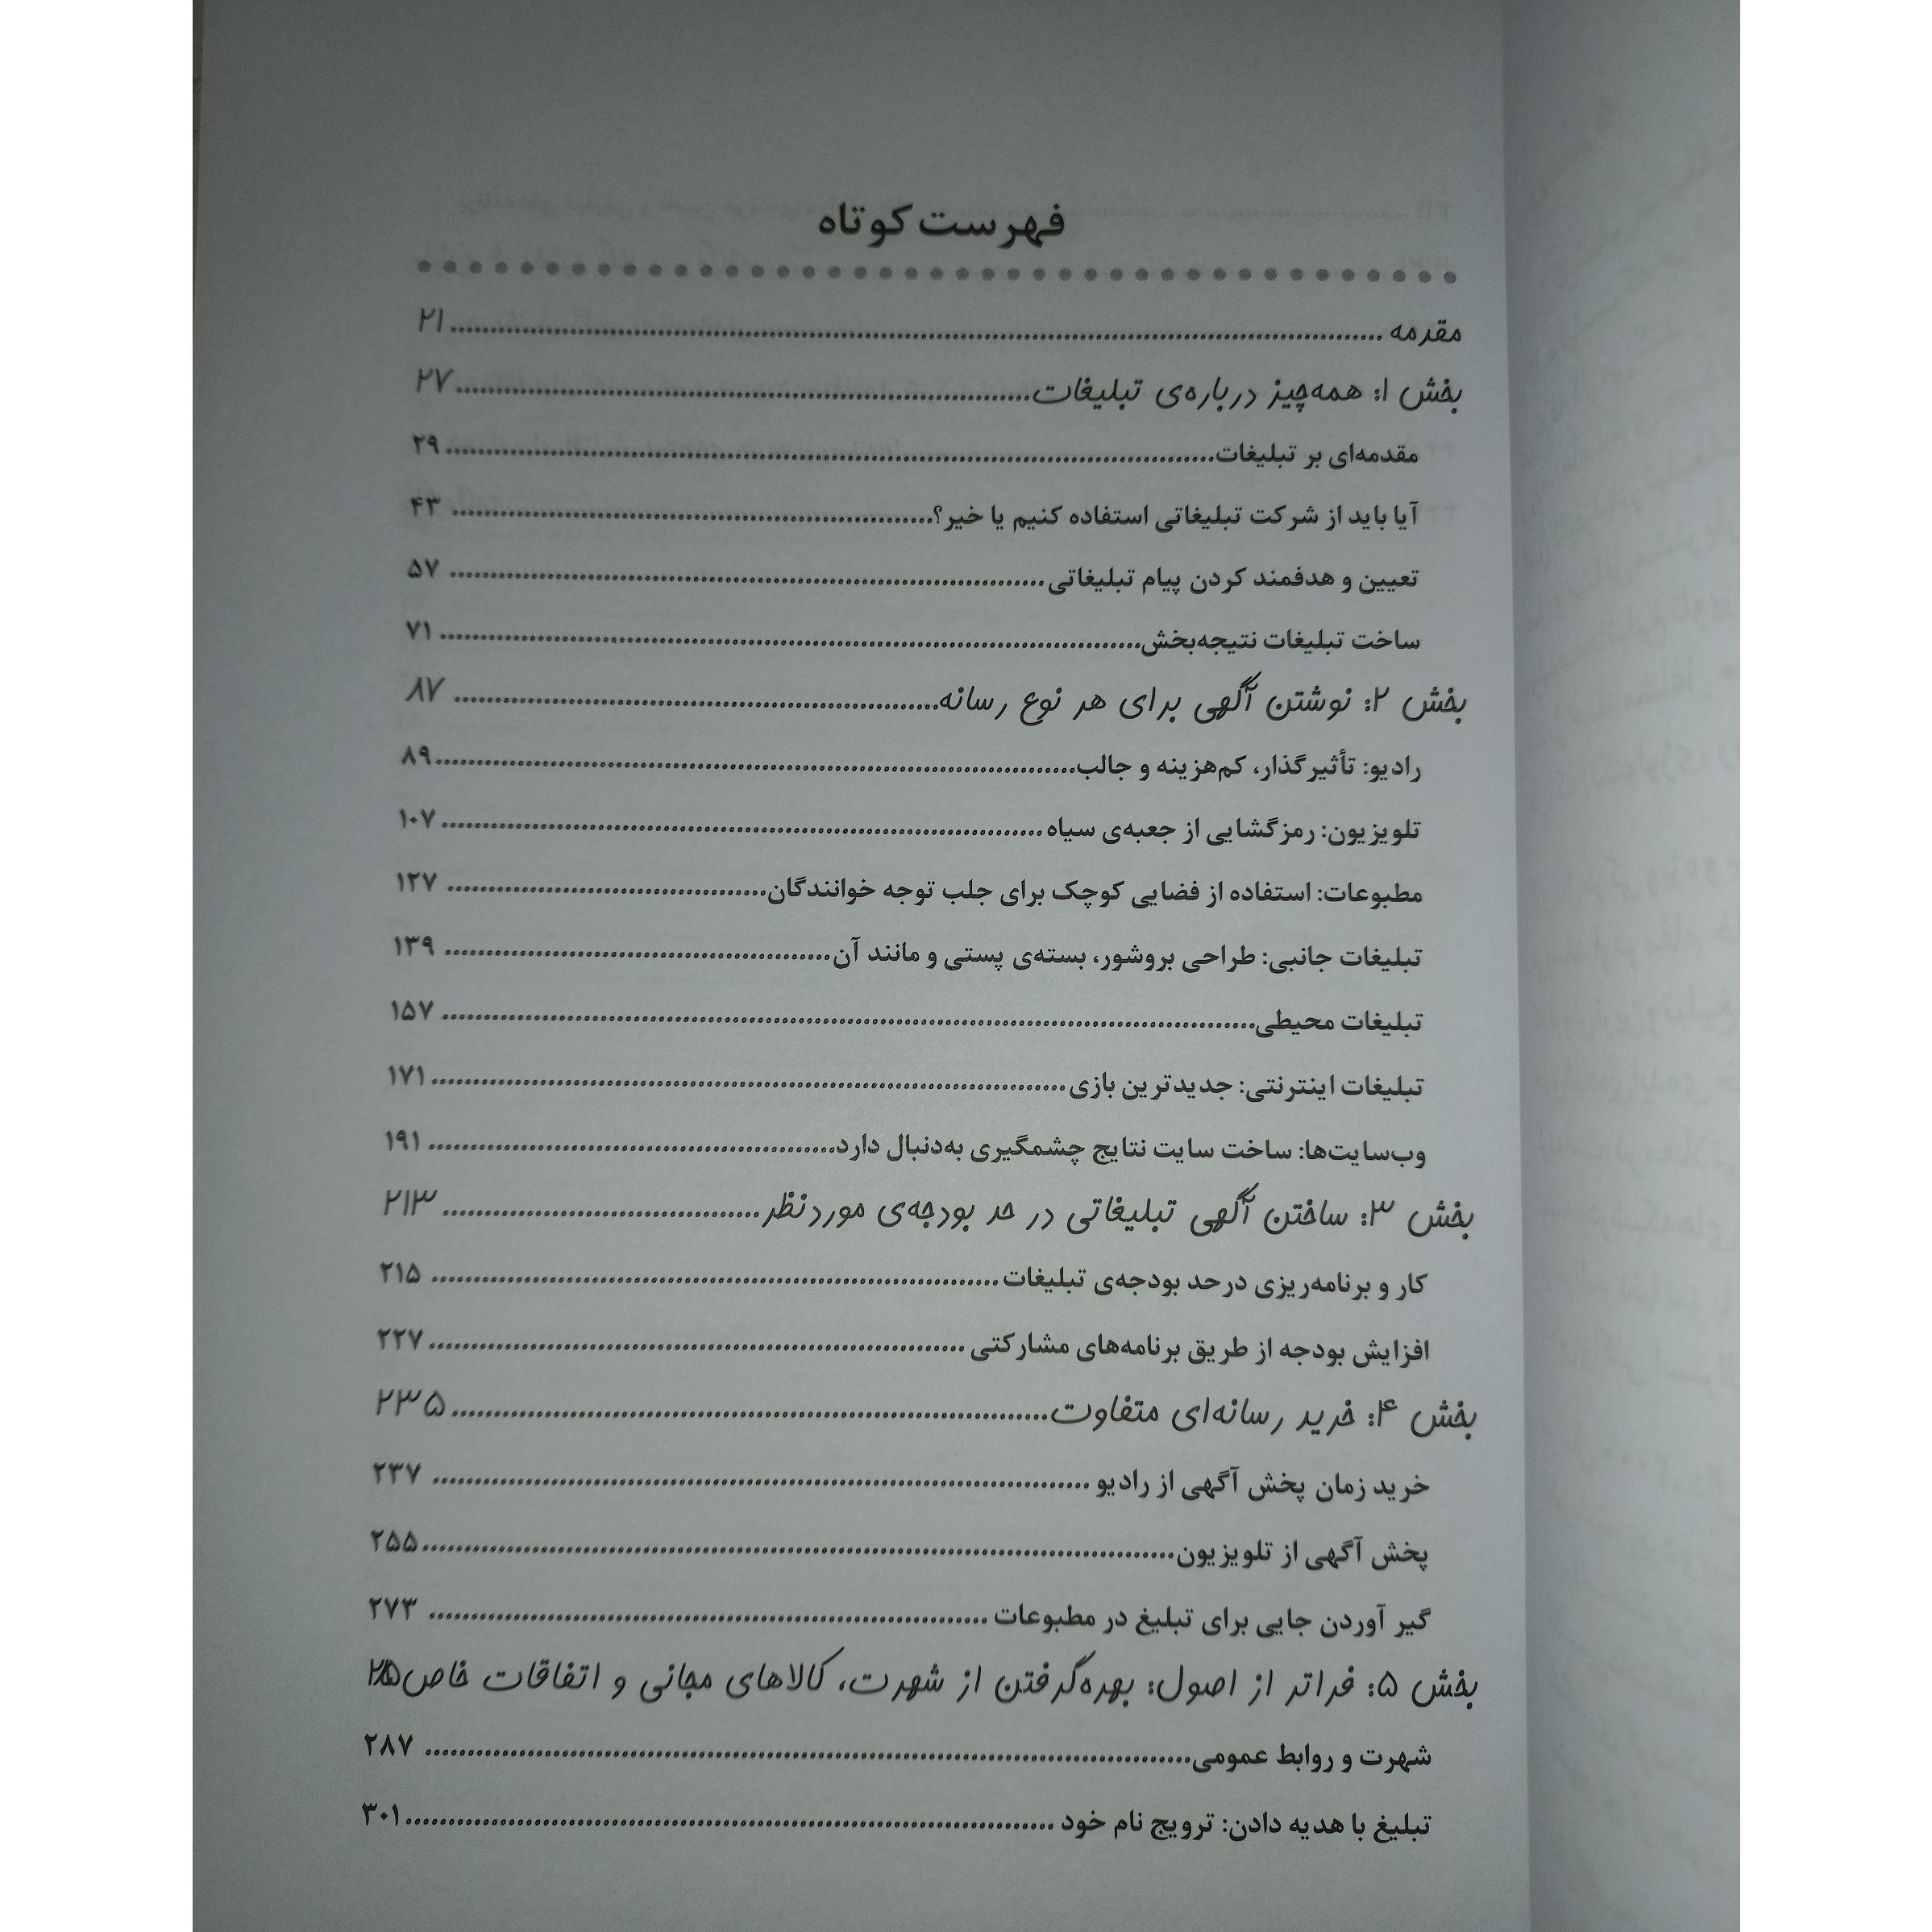 فهرست کوتاه
مقدمه ........ ۲۱
بخش ۱: همه‌چیز درباره‌ی تبلیغات ........ ۲۷
مقدمه‌ای بر تبلیغات ........ ۲۹
آیا باید از شرکت تبلیغاتی استفاده کنیم یا خیر؟ ........ ۴۳
تعیین و هدفمند کردن پیام تبلیغاتی ........ ۵۷
ساخت تبلیغات نتیجه‌بخش ........ ۷۱
بخش ۲: نوشتن آگهی برای هر نوع رسانه ........ ۸۷
رادیو: تأثیرگذار، کم‌هزینه و جالب ........ ۸۹
تلویزیون: رمزگشایی از جعبه‌ی سیاه ........ ۱۰۷
مطبوعات: استفاده از فضایی کوچک برای جلب توجه خوانندگان ........ ۱۲۷
تبلیغات جانبی: طراحی بروشور، بسته‌ی پستی و مانند آن ........ ۱۳۹
تبلیغات محیطی ........ ۱۵۷
تبلیغات اینترنتی: جدیدترین بازی ........ ۱۷۱
وب‌سایت‌ها: ساخت سایت نتایج چشمگیری به‌دنبال دارد ........ ۱۹۱
بخش ۳: ساختن آگهی تبلیغاتی در حد بودجه‌ی موردنظر ........ ۲۱۳
کار و برنامه‌ریزی درحد بودجه‌ی تبلیغات ........ ۲۱۵
افزایش بودجه از طریق برنامه‌های مشارکتی ........ ۲۲۷
بخش ۴: خرید رسانه‌ای متفاوت ........ ۲۳۵
خرید زمان پخش آگهی از رادیو ........ ۲۳۷
پخش آگهی از تلویزیون ........ ۲۵۵
گیر آوردن جایی برای تبلیغ در مطبوعات ........ ۲۷۳
بخش ۵: فراتر از اصول: بهره‌گرفتن از شهرت، کالاهای مجانی و اتفاقات خاص
شهرت و روابط عمومی ........ ۲۸۷
تبلیغ با هدیه دادن: ترویج نام خود ........ ۳۰۱